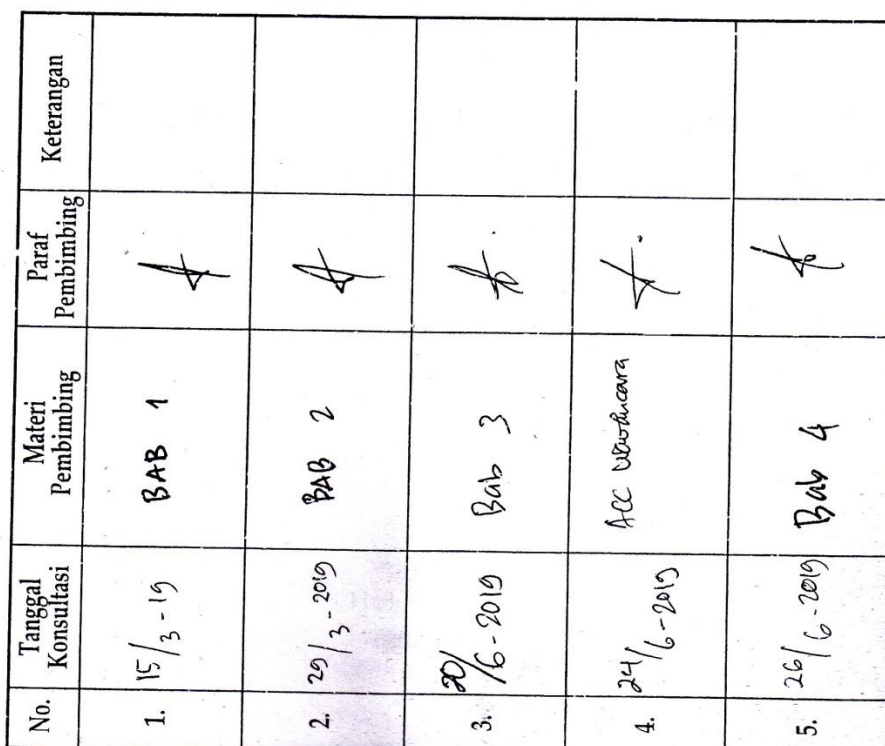 No. Tanggal Konsultasi Materi Pembimbing Paraf Pembimbing Keterangan
1. 15/3-19 BAB 1
2. 29/3-2019 BAB 2
3. 20/6-2019 Bab 3
4. 24/6-2019 ACC wawancara
5. 26/6-2019 Bab 4